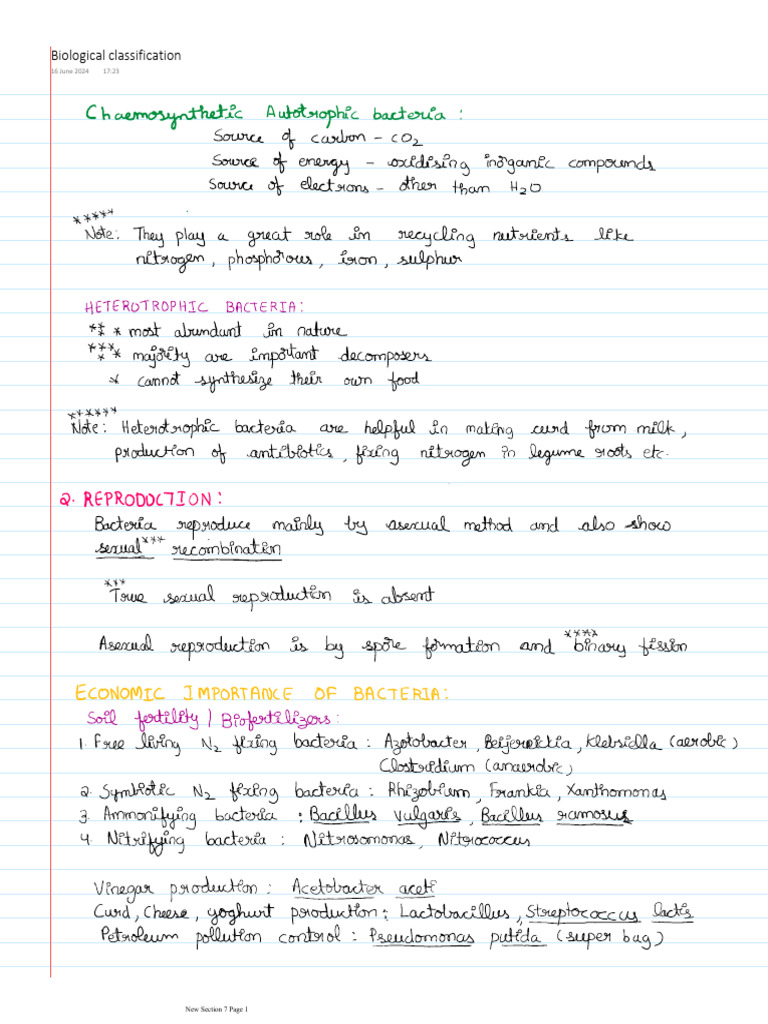 Biological classification
16 June 2024 17:23
Chaemosynthetic Autotrophic bacteria:
Source of carbon - CO2
Source of energy - oxidising inorganic compounds
Source of electrons - other than H2O
*****
Note: They play a great role in recycling nutrients like
nitrogen, phosphorous, iron, sulphur
HETEROTROPHIC BACTERIA:
*** * most abundant in nature
**** * majority are important decomposers
* cannot synthesize their own food
******
Note: Heterotrophic bacteria are helpful in making curd from milk,
production of antibiotics, fixing nitrogen in legume roots etc.
2. REPRODUCTION:
Bacteria reproduce mainly by asexual method and also show
sexual*** recombination
***
True sexual reproduction is absent
****
Asexual reproduction is by spore formation and binary fission
ECONOMIC IMPORTANCE OF BACTERIA:
Soil fertility / Biofertilizers:
1. Free living N2 fixing bacteria: Azotobacter, Beijerinktia, Klebsiella (aerobic)
Clostridium (anaerobic)
2. Symbiotic N2 fixing bacteria: Rhizobium, Frankia, Xanthomonas
3. Ammonifying bacteria: Bacillus vulgaris, Bacillus ramosus
4. Nitrifying bacteria: Nitrosomonas, Nitrococcus
Vinegar production: Acetobacter aceti
Curd, Cheese, yoghurt production: Lactobacillus, Streptococcus lactis
Petroleum pollution control: Pseudomonas putida (super bug)
New Section 7 Page 1